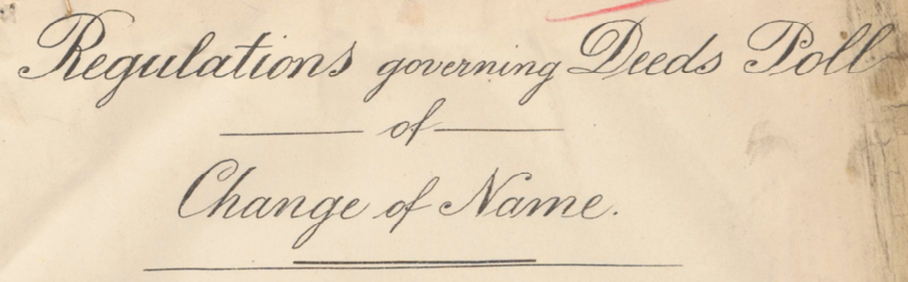 Regulations governing Deeds Poll
of
Change of Name.